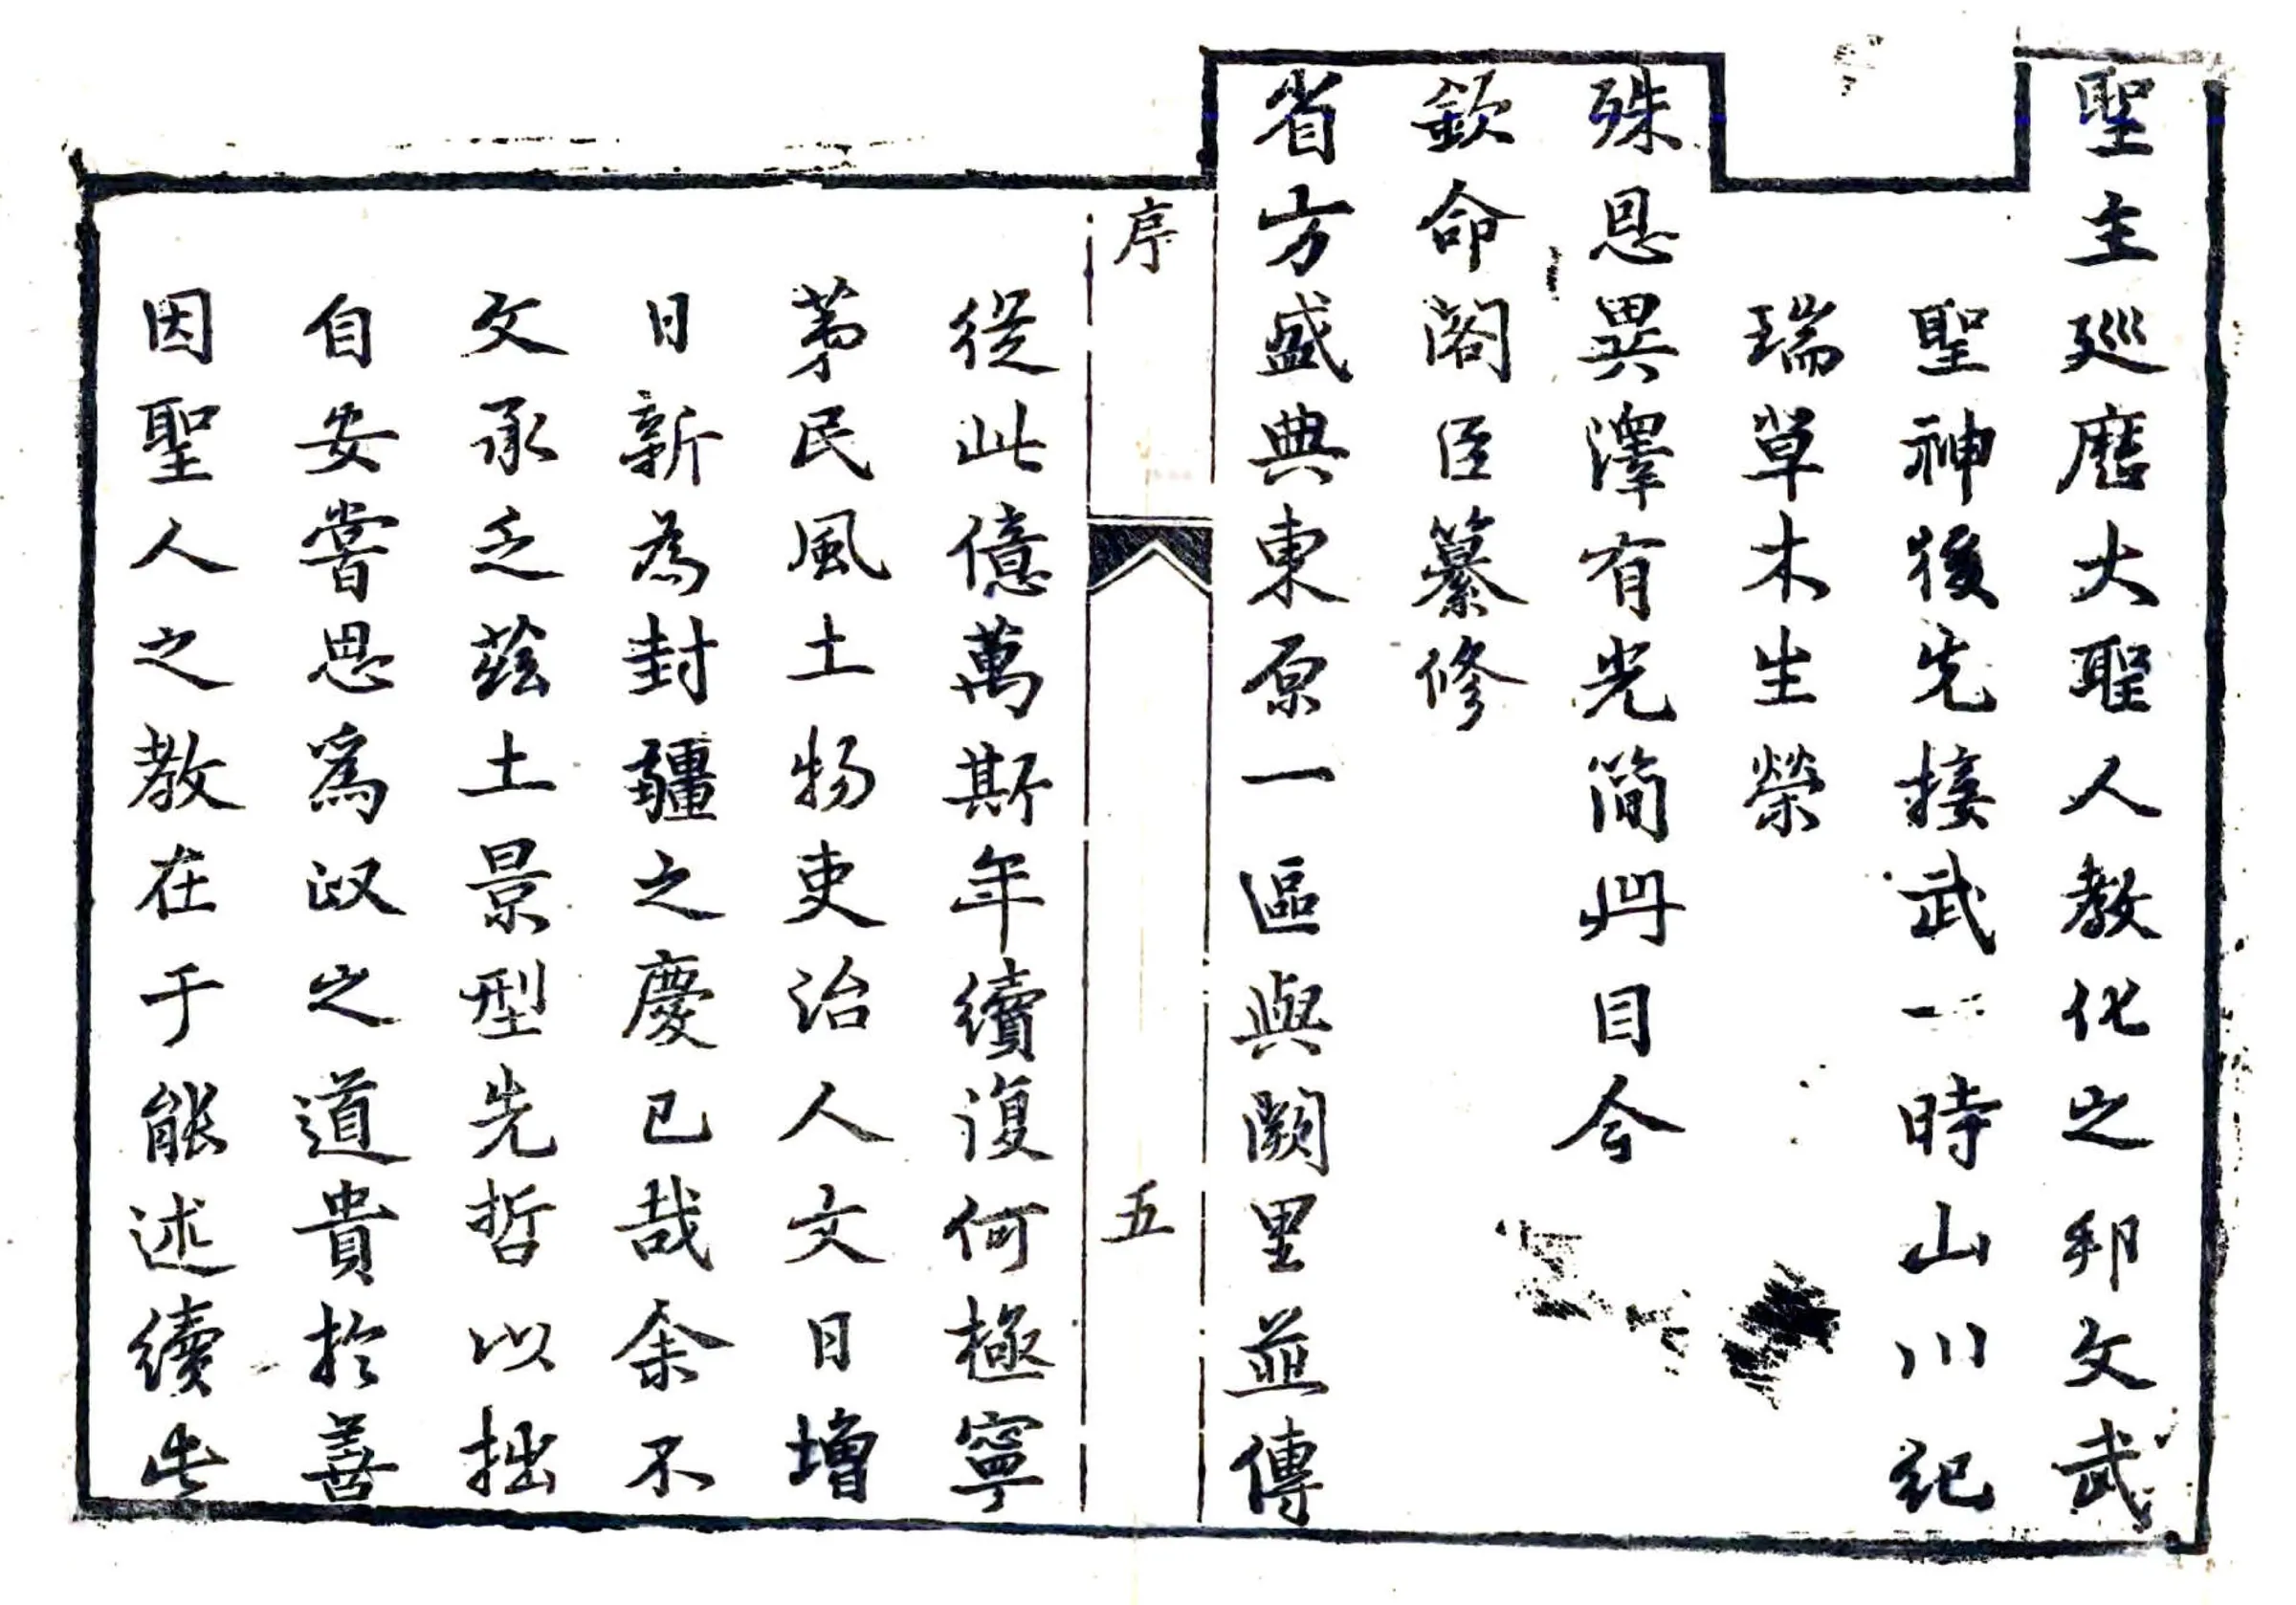 聖主廵歷大聖人教化之邦文武
聖神後先接武一時山川紀
瑞草木生榮
殊恩異澤有光簡冊目今
欽命閣臣纂修
省方盛典東原一區與闕里並傳
序
五
從此億萬斯年續復何極寧
苐民風土物吏治人文日增
日新為封疆之慶已哉余不
文承乏茲土景型先哲以拙
自安嘗思爲政之道貴於善
因聖人之教在于能述續此